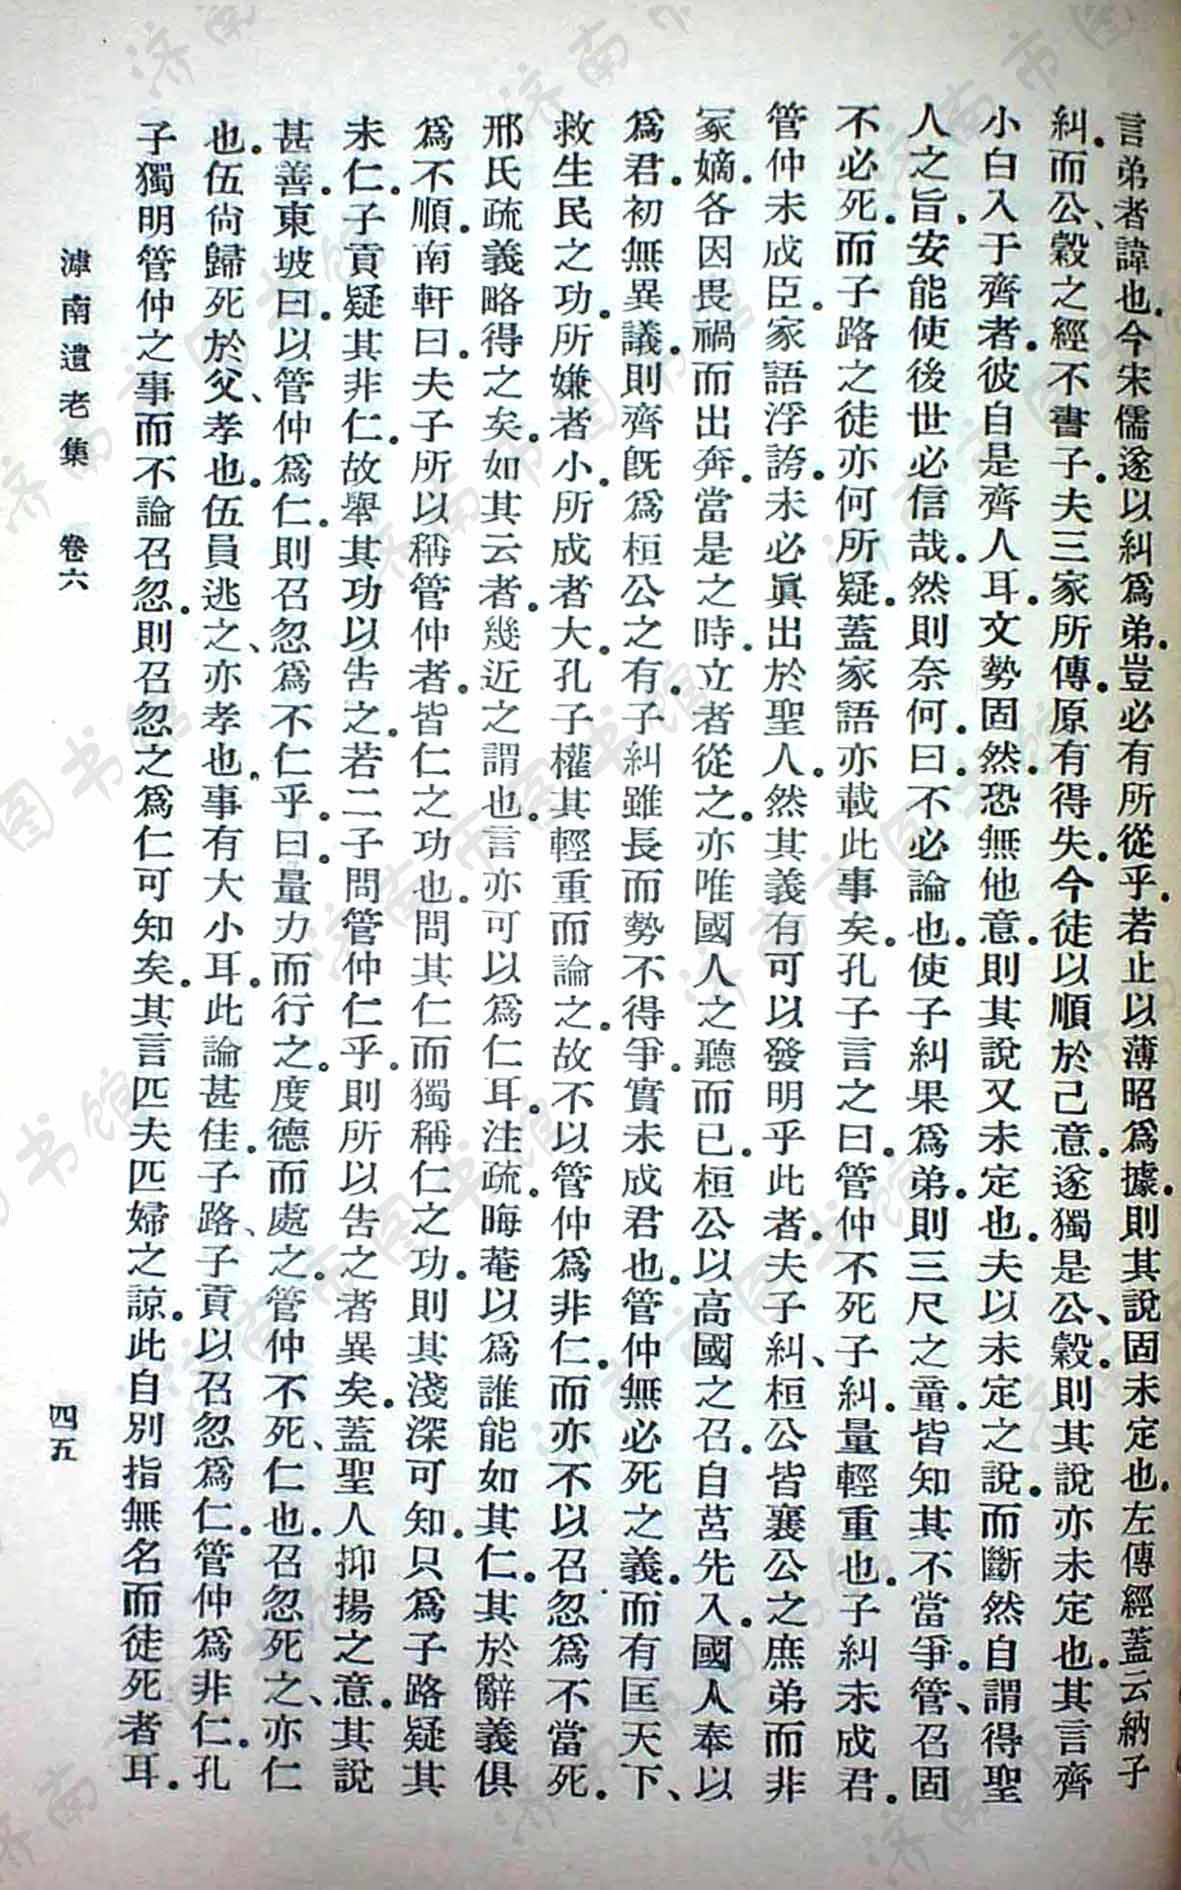 言弟者諱也。今宋儒遂以糾爲弟。豈必有所從乎。若止以薄昭爲據。則其說固未定也。左傳經蓋云納子
糾。而公、穀之經不書子。夫三家所傳。原有得失。今徒以順於己意。遂獨是公、穀。則其說亦未定也。其言齊
小白入于齊者。彼自是齊人耳。文勢固然。恐無他意。則其說又未定也。夫以未定之說。而斷然自謂得聖
人之旨。安能使後世必信哉。然則奈何。曰。不必論也。使子糾果爲弟。則三尺之童。皆知其不當爭。管、召固
不必死。而子路之徒。亦何所疑。蓋家語亦載此事矣。孔子言之曰。管仲不死子糾。量輕重也。子糾未成君。
管仲未成臣。家語浮誇。未必眞出於聖人。然其義有可以發明乎此者。夫子糾、桓公皆襄公之庶弟而非
冢嫡。各因畏禍而出奔。當是之時。立者從之。亦唯國人之聽而已。桓公以高國之召。自莒先入。國人奉以
爲君。初無異議。則齊旣爲桓公之有。子糾雖長而勢不得爭。實未成君也。管仲無必死之義。而有匡天下、
救生民之功。所嫌者小。所成者大。孔子權其輕重而論之。故不以管仲爲非仁。而亦不以召忽爲不當死。
邢氏疏義略得之矣。如其云者。幾近之謂也。言亦可以爲仁耳。注疏。晦菴以爲誰能如其仁。其於辭義俱
爲不順。南軒曰。夫子所以稱管仲者。皆仁之功也。問其仁而獨稱仁之功。則其淺深可知。只爲子路疑其
未仁。子貢疑其非仁。故舉其功以吿之。若二子問管仲仁乎。則所以吿之者異矣。蓋聖人抑揚之意。其說
甚善。東坡曰。以管仲爲仁。則召忽爲不仁乎。曰。量力而行之。度德而處之。管仲不死、仁也。召忽死之、亦仁
也。伍尙歸死於父、孝也。伍員逃之、亦孝也。事有大小耳。此論甚佳。子路、子貢以召忽爲仁。管仲爲非仁。孔
子獨明管仲之事而不論召忽。則召忽之爲仁可知矣。其言匹夫匹婦之諒。此自別指無名而徒死者耳。
滹南遺老集 卷六
四五
济南市图书馆